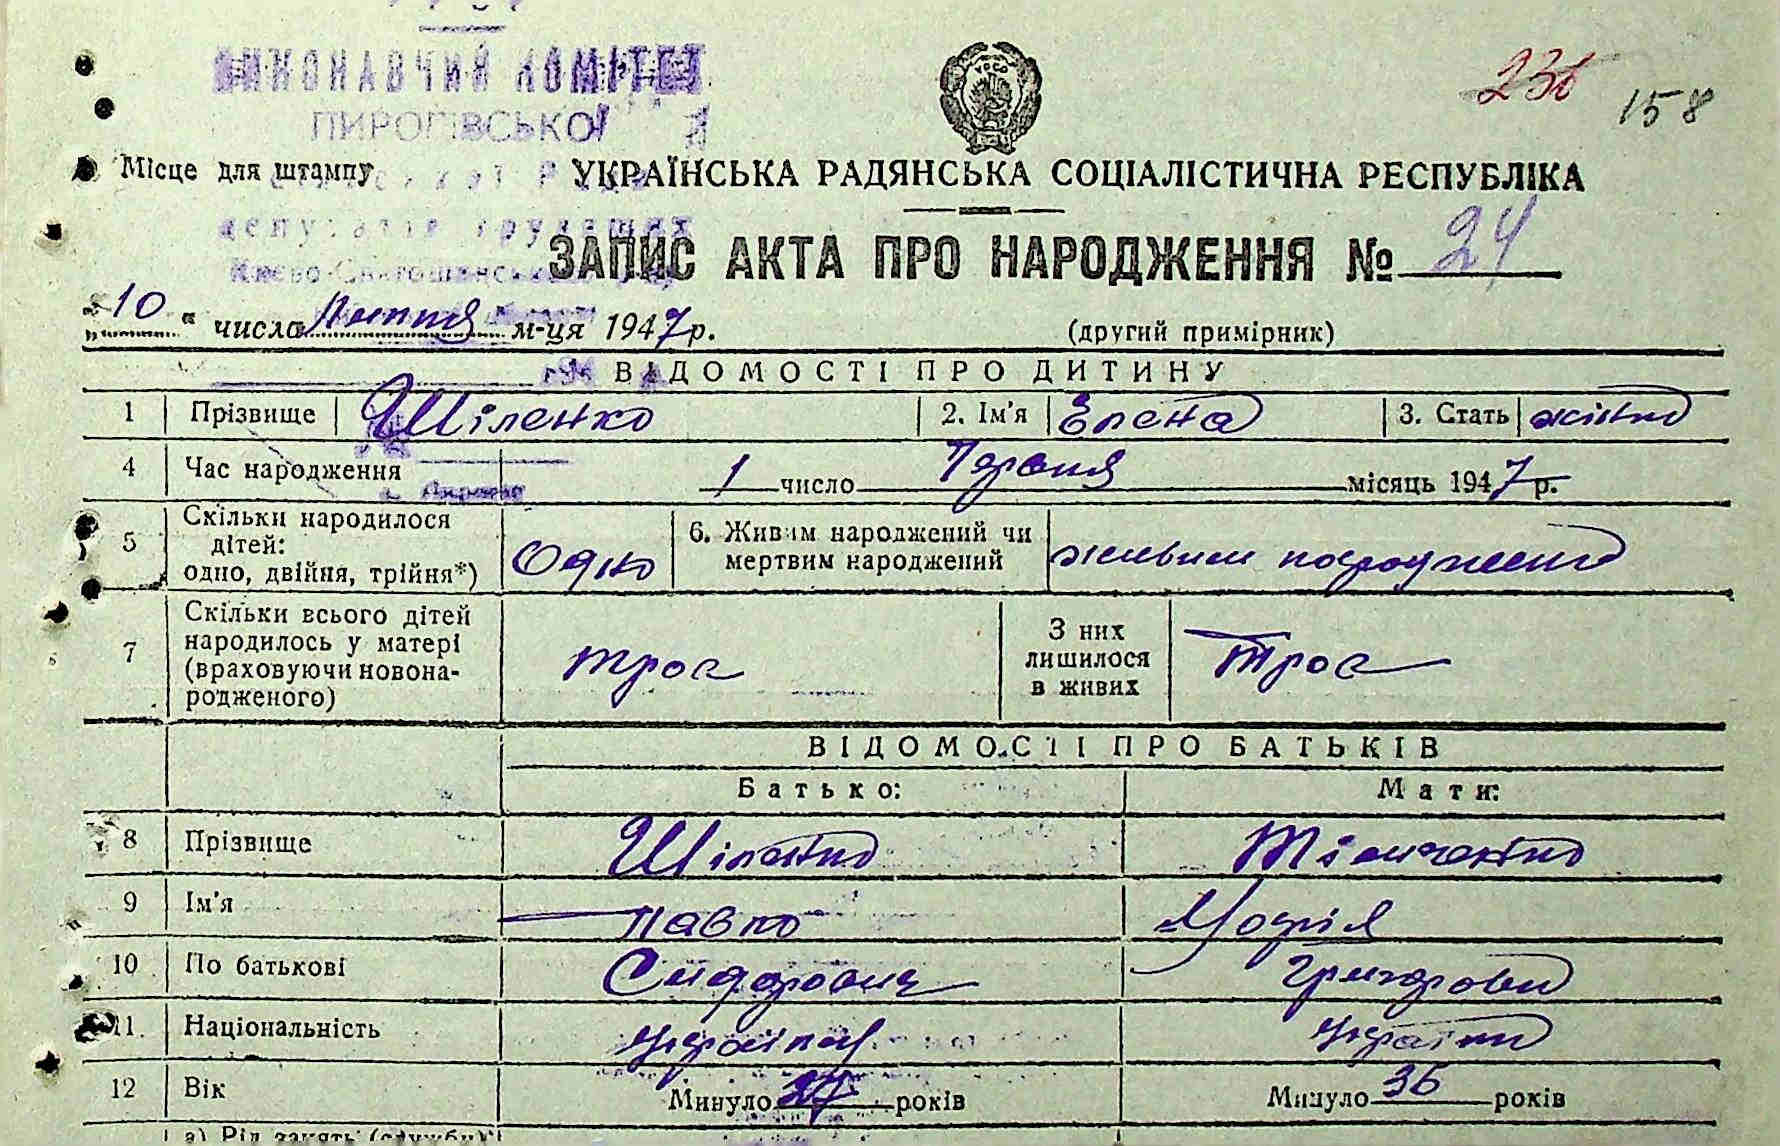 ВИКОНАВЧИЙ КОМІТЕТ
ПИРОГІВСЬКОЇ
депутатів трудящих
Києво-Святошинського
УРСР
236
158
Місце для штампу
УКРАЇНСЬКА РАДЯНСЬКА СОЦІАЛІСТИЧНА РЕСПУБЛІКА
ЗАПИС АКТА ПРО НАРОДЖЕННЯ № 24
„10“ числа Липня м-ця 1947 р.
(другий примірник)
ВІДОМОСТІ ПРО ДИТИНУ
1 Прізвище Шіленко 2. Ім'я Елена 3. Стать жіноча
4 Час народження 1 число місяць 1947 р.
5 Скільки народилося дітей: одно, двійня, трійня*) Одно 6. Живим народжений чи мертвим народжений живим
7 Скільки всього дітей народилось у матері (враховуючи новонародженого) троє З них лишилося в живих Троє
ВІДОМОСТІ ПРО БАТЬКІВ
Батько: Мати:
8 Прізвище Шіленко
9 Ім'я Павло Марія
10 По батькові Сидорович Григоровна
11. Національність
12 Вік Минуло років Минуло 36 років
а) Рід занять (служби)